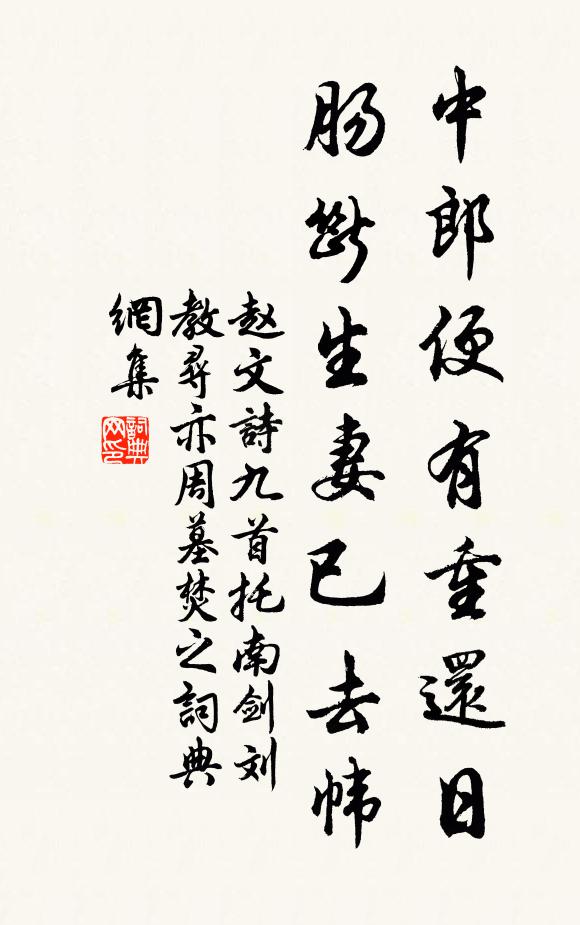 中郎便有重還日
肠斷生妻已去帏
赵文詩九首托南剑刘
教尋亦周墓焚之詞典
網集
詞典网印